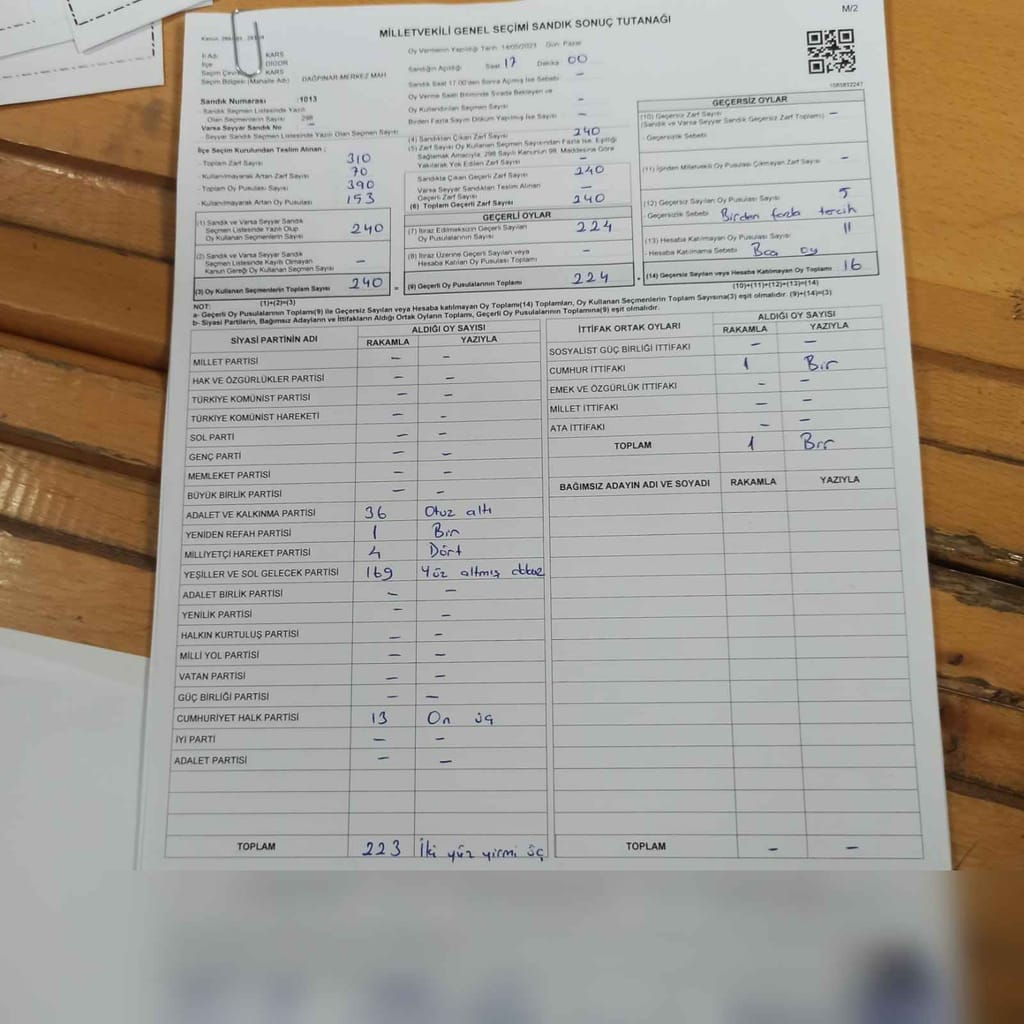 M/2
MİLLETVEKİLİ GENEL SEÇİMİ SANDIK SONUÇ TUTANAĞI
Oy Vermenin Yapıldığı Tarih: 14/05/2023 Gün: Pazar
İl Adı KARS
İlçe DİGOR
Seçim Çevresi KARS
Seçim Bölgesi (Mahalle Adı) DAĞPINAR-MERKEZ MAH
Sandığın Açıldığı Saat 17 Dakika 00
Sandık Saat 17:00'den Sonra Açılmış İse Sebebi –
Oy Verme Saati Bitiminde Sırada Bekleyen ve
Oy Kullandırılan Seçmen Sayısı –
Birden Fazla Sayım Döküm Yapılmış İse Sayısı –
Sandık Numarası :1013
Sandık Seçmen Listesinde Yazılı
Olan Seçmenlerin Sayısı 298
Varsa Seyyar Sandık No –
Seyyar Sandık Seçmen Listesinde Yazılı Olan Seçmen Sayısı
İlçe Seçim Kurulundan Teslim Alınan :
- Toplam Zarf Sayısı 310
- Kullanılmayarak Artan Zarf Sayısı 70
- Toplam Oy Pusulası Sayısı 390
- Kullanılmayarak Artan Oy Pusulası 153
(1) Sandık ve Varsa Seyyar Sandık
Seçmen Listesinde Yazılı Olup
Oy Kullanan Seçmenlerin Sayısı 240
(2) Sandık ve Varsa Seyyar Sandık
Seçmen Listesinde Kayıtlı Olmayan
Kanun Gereği Oy Kullanan Seçmen Sayısı –
(3) Oy Kullanan Seçmenlerin Toplam Sayısı 240
(1)+(2)=(3)
(4) Sandıktan Çıkan Zarf Sayısı 240
(5) Zarf Sayısı Oy Kullanan Seçmen Sayısından Fazla İse, Eşitliği
Sağlamak Amacıyla; 298 Sayılı Kanunun 98. Maddesine Göre
Yakılarak Yok Edilen Zarf Sayısı –
Sandıkta Çıkan Geçerli Zarf Sayısı 240
Varsa Seyyar Sandıktan Teslim Alınan
Geçerli Zarf Sayısı –
(6) Toplam Geçerli Zarf Sayısı 240
GEÇERLİ OYLAR
(7) İtiraz Edilmeksizin Geçerli Sayılan
Oy Pusulalarının Sayısı 224
(8) İtiraz Üzerine Geçerli Sayılan veya
Hesaba Katılan Oy Pusulası Toplamı –
(9) Geçerli Oy Pusulalarının Toplamı 224
GEÇERSİZ OYLAR
(10) Geçersiz Zarf Sayısı
(Sandık ve Varsa Seyyar Sandık Geçersiz Zarf Toplamı) –
- Geçersizlik Sebebi
(11) İçinden Milletvekili Oy Pusulası Çıkmayan Zarf Sayısı –
(12) Geçersiz Sayılan Oy Pusulası Sayısı 5
- Geçersizlik Sebebi Birden fazla tercih
(13) Hesaba Katılmayan Oy Pusulası Sayısı 11
- Hesaba Katılmama Sebebi Boş oy
(14) Geçersiz Sayılan veya Hesaba Katılmayan Oy Toplamı 16
(10)+(11)+(12)+(13)=(14)
NOT:
a- Geçerli Oy Pusulalarının Toplamı(9) ile Geçersiz Sayılan veya Hesaba katılmayan Oy Toplamı(14) Toplamları, Oy Kullanan Seçmenlerin Toplam Sayısına(3) eşit olmalıdır. (9)+(14)=(3)
b- Siyasi Partilerin, Bağımsız Adayların ve İttifakların Aldığı Ortak Oyların Toplamı, Geçerli Oy Pusulalarının Toplamına(9) eşit olmalıdır.
SİYASİ PARTİNİN ADI ALDIĞI OY SAYISI
RAKAMLA YAZIYLA
MİLLET PARTİSİ – –
HAK VE ÖZGÜRLÜKLER PARTİSİ – –
TÜRKİYE KOMÜNİST PARTİSİ – –
TÜRKİYE KOMÜNİST HAREKETİ – –
SOL PARTİ – –
GENÇ PARTİ – –
MEMLEKET PARTİSİ – –
BÜYÜK BİRLİK PARTİSİ – –
ADALET VE KALKINMA PARTİSİ 36 Otuz altı
YENİDEN REFAH PARTİSİ 1 Bir
MİLLİYETÇİ HAREKET PARTİSİ 4 Dört
YEŞİLLER VE SOL GELECEK PARTİSİ 169 Yüz altmış
ADALET BİRLİK PARTİSİ – –
YENİLİK PARTİSİ – –
HALKIN KURTULUŞ PARTİSİ – –
MİLLİ YOL PARTİSİ – –
VATAN PARTİSİ – –
GÜÇ BİRLİĞİ PARTİSİ – –
CUMHURİYET HALK PARTİSİ 13 On üç
İYİ PARTİ – –
ADALET PARTİSİ – –
TOPLAM 223 İki yüz yirmi üç
İTTİFAK ORTAK OYLARI ALDIĞI OY SAYISI
RAKAMLA YAZIYLA
SOSYALİST GÜÇ BİRLİĞİ İTTİFAKI – –
CUMHUR İTTİFAKI 1 Bir
EMEK VE ÖZGÜRLÜK İTTİFAKI – –
MİLLET İTTİFAKI – –
ATA İTTİFAKI – –
TOPLAM 1 Bir
BAĞIMSIZ ADAYIN ADI VE SOYADI RAKAMLA YAZIYLA
TOPLAM – –